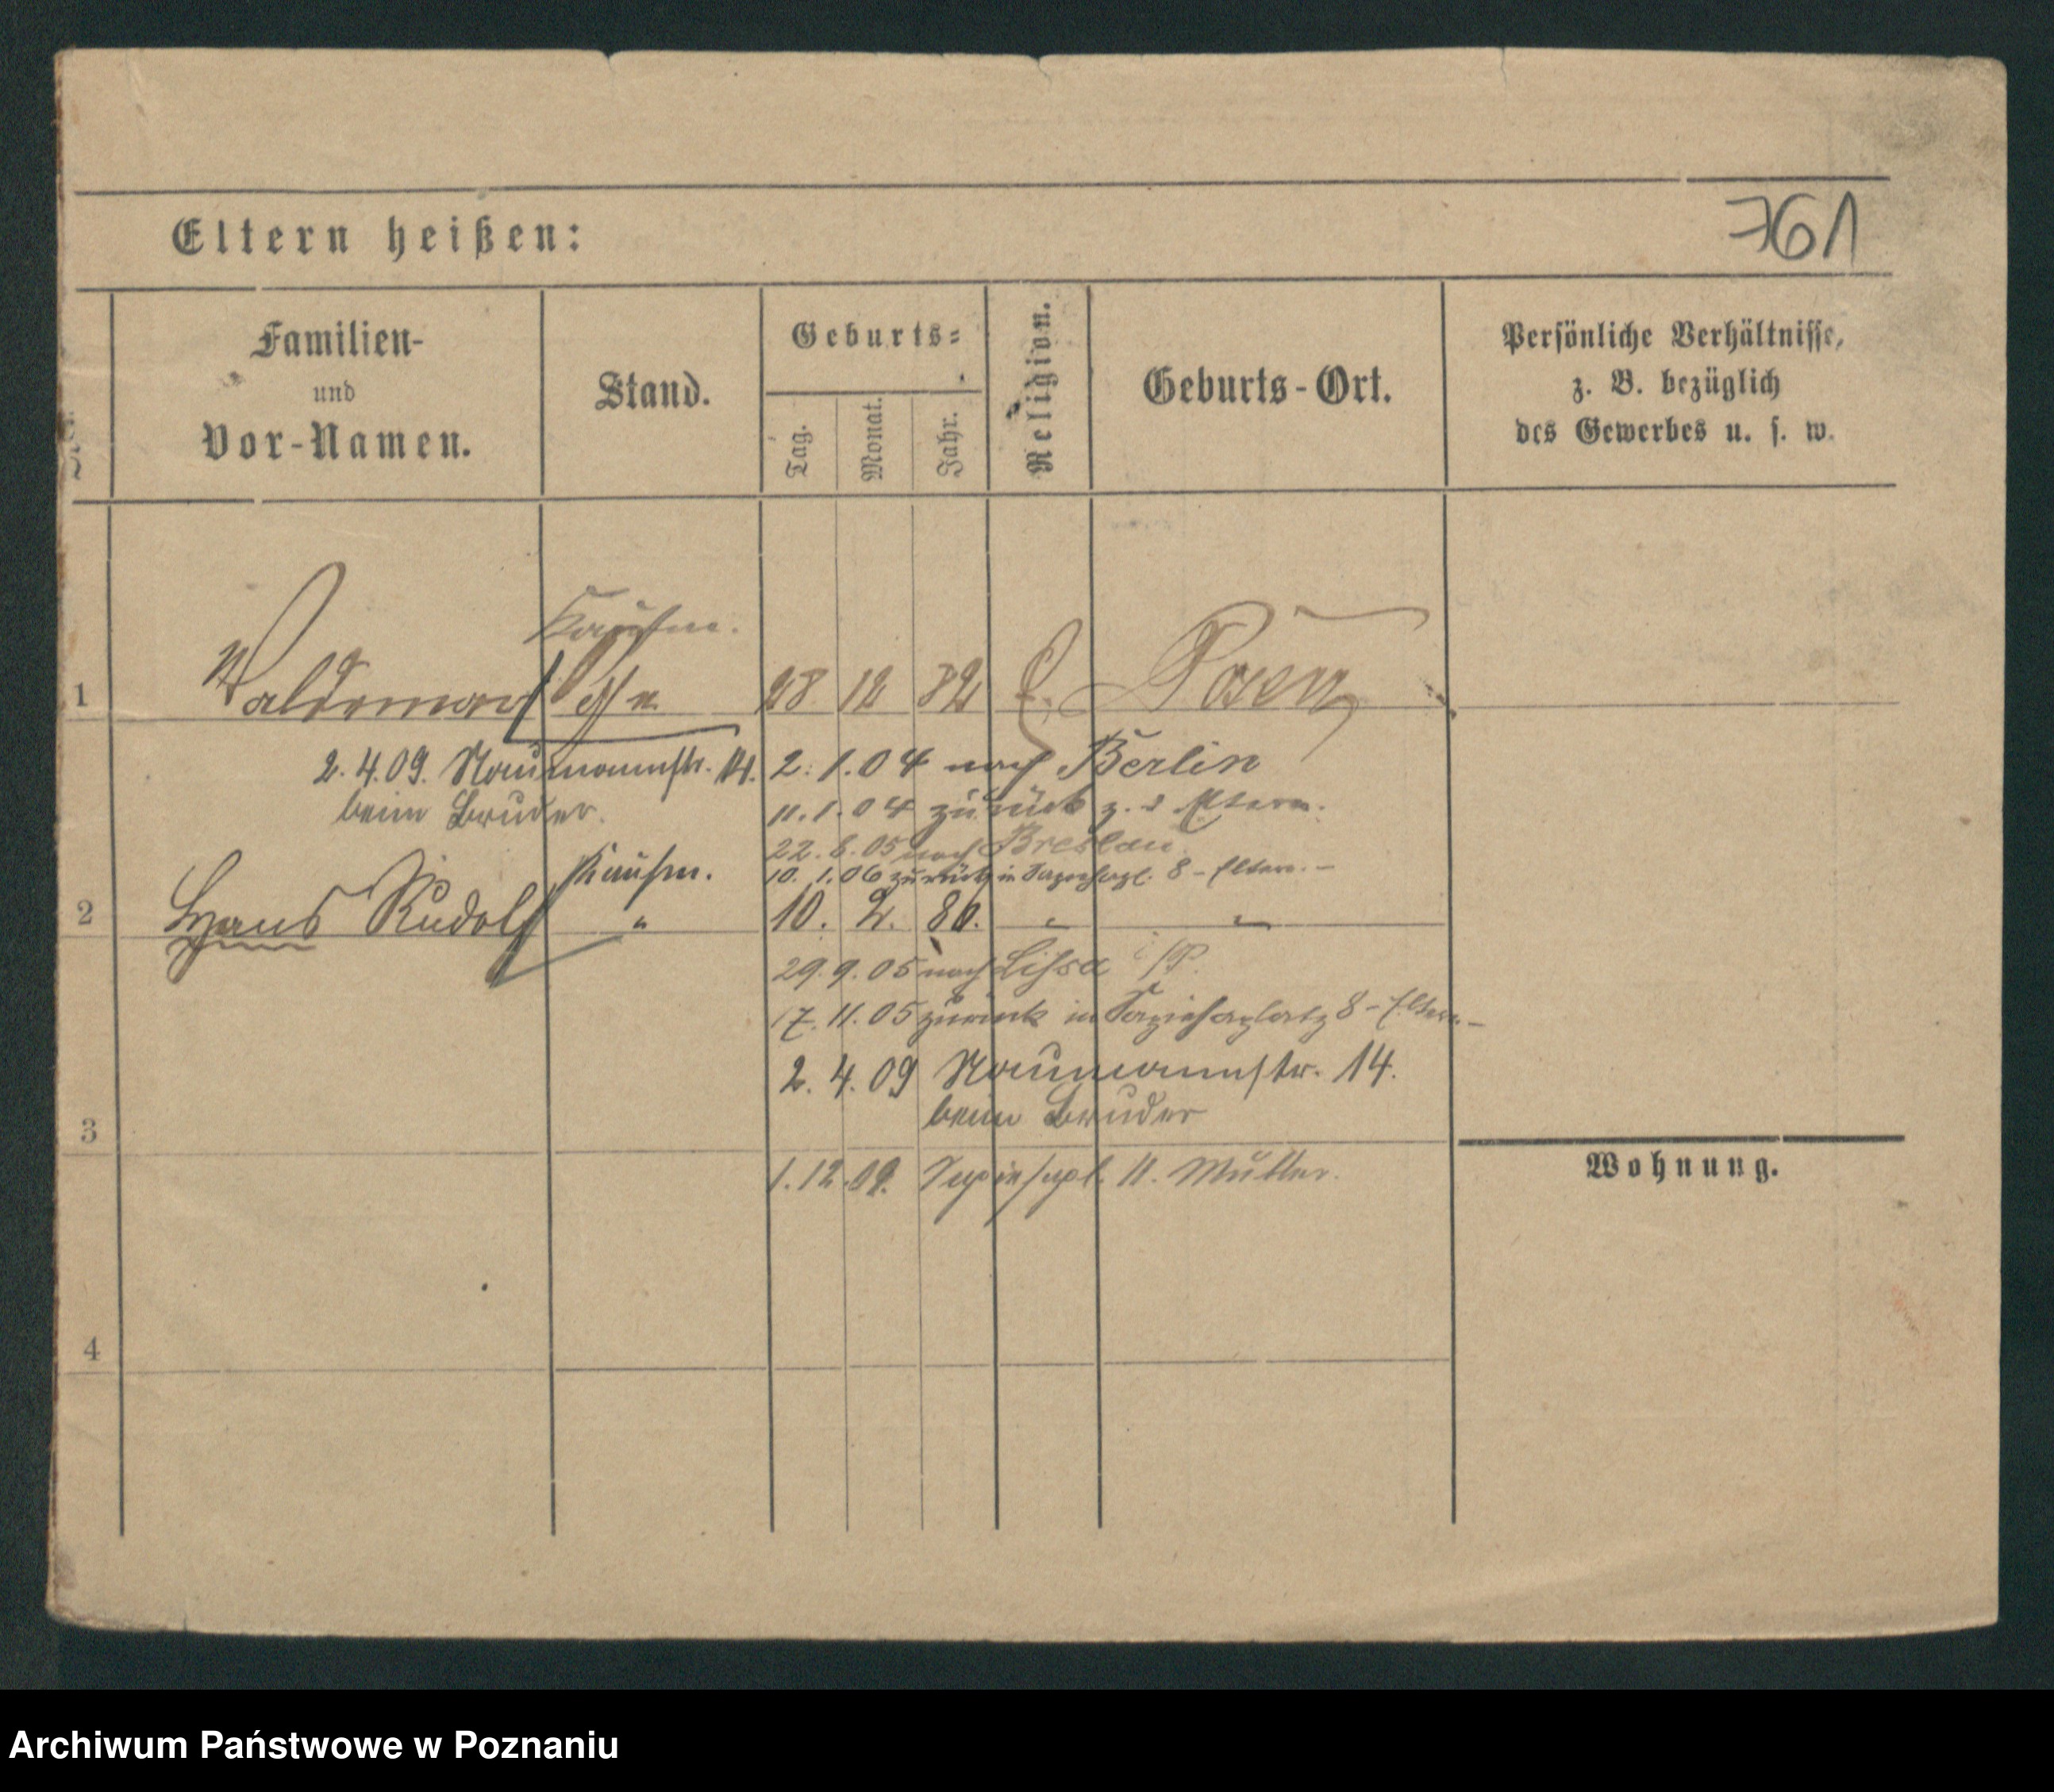 761
Eltern heißen:
Familien-
und
Vor-Namen.
Stand.
Geburts-
Tag.
Monat.
Jahr.
Religion.
Geburts-Ort.
Persönliche Verhältnisse,
z. B. bezüglich
des Gewerbes u. s. w.
Kaufm.
1 Waldemar 28 12 82 E. Posen
2.4.09. Naumannstr. 14.
beim Bruder.
2. 1. 04 nach Berlin
11. 1. 04 zurück z. d. Eltern.
22. 8. 05 nach Breslau
10. 1. 06 zurück in 8 - Eltern. -
Kaufm.
2 Hans Rudolf " 10. 2. 86. " "
29. 9. 05 nach Lissa i/P.
17. 11. 05 zurück in Sapiehaplatz 8 - Eltern. -
2. 4. 09 Naumannstr. 14.
beim Bruder
3
1. 12. 09. Sapiehapl. 11. Mutter.
Wohnung.
4
Archiwum Państwowe w Poznaniu